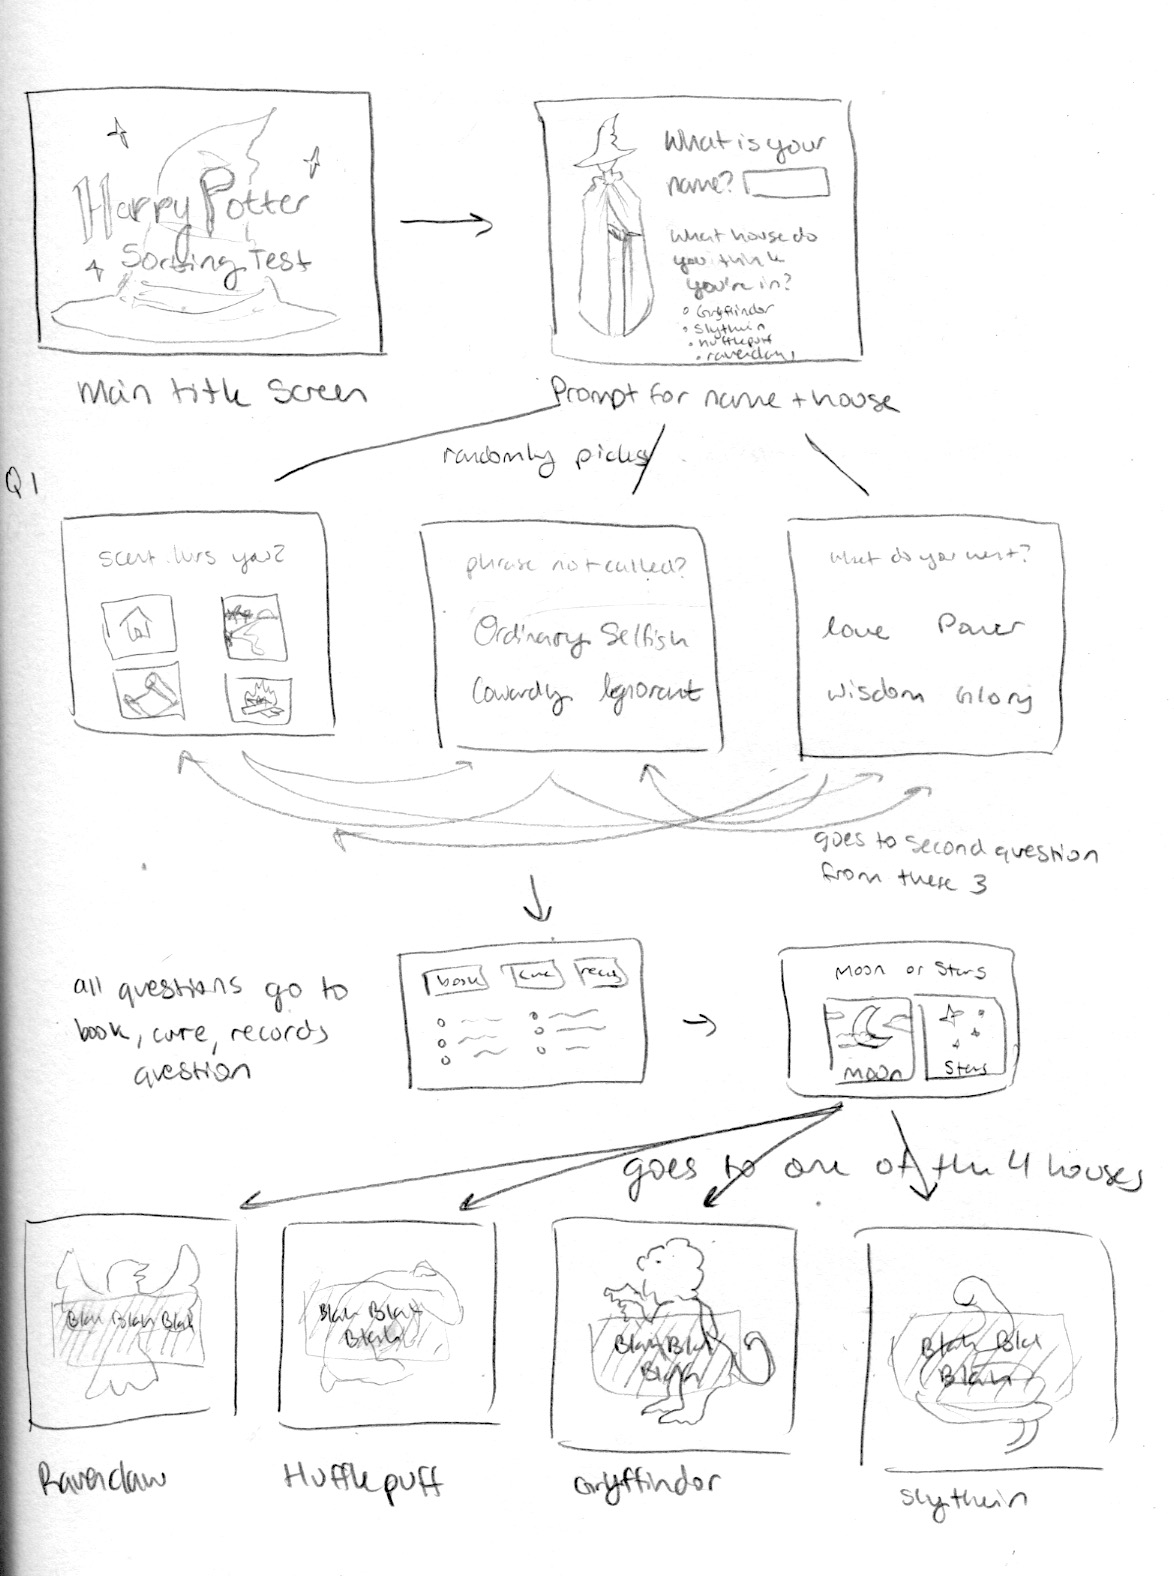 Harry Potter
Sorting Test
Main title Screen
What is your
name?
What house do
you think
you're in?
Gryffindor
Slytherin
Hufflepuff
ravenclaw
Prompt for name + house
randomly picks
Q1
scent lurs you?
phrase not called?
Ordinary Selfish
Cowardly Ignorant
What do you want?
love Power
wisdom Glory
goes to second question
from these 3
all questions go to
book, cure, records
question
book cure recs
Moon or Stars
Moon Stars
goes to one of the 4 houses
Blah Blah Blah
Blah Blah
Blah
Blah Blah
Blah
Blah Blah
Blah
Ravenclaw
Hufflepuff
Gryffindor
Slytherin